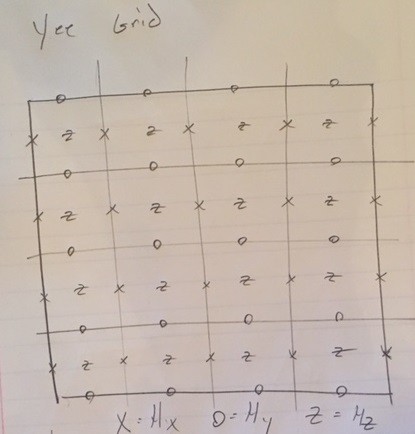 Yee Grid
o o o o
x z x z x z x z x
o o o o
x z x z x z x z x
o o o o
x z x z x z x z x
o o o o
x z x z x z x z x
o o o o
X = Hx O = Hy Z = Hz